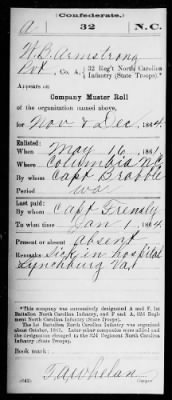 (Confederate.)
A 32 N.C.
W. B. Armstrong
Pvt, Co. A, 32 Reg't North Carolina Infantry (State Troops).*
Appears on
Company Muster Roll
of the organization named above,
for Nov & Dec, 1864.
Enlisted:
When May 16, 1861
Where Columbia N.C.
By whom Capt Brabble
Period war
Last paid:
By whom Capt
To what time Jan 1, 1864.
Present or absent absent
Remarks: Sick in hospital
Lynchburg Va.
*This company was successively designated A and F, 1st Battalion North Carolina Infantry, and F and A, 32d Regiment North Carolina Infantry (State Troops).
The 1st Battalion North Carolina Infantry was organized about October, 1861. Later other companies were added and the designation changed to the 32d Regiment North Carolina Infantry (State Troops).
Book mark:
T A Whelan
Copyist.